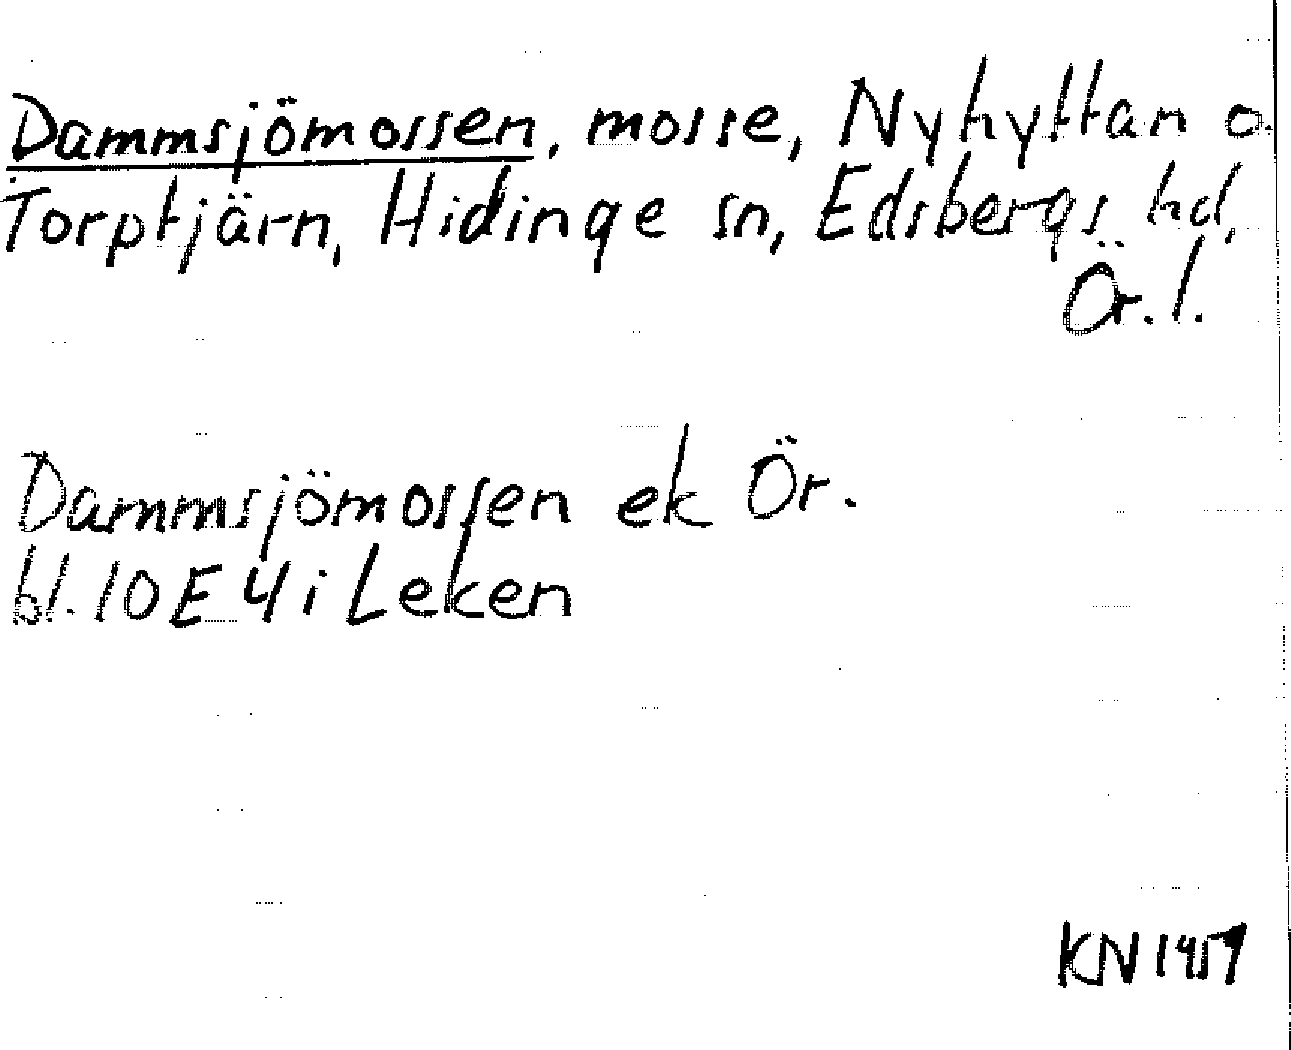 Dammsjömossen, mosse, Nyhyttan o.
Torptjärn, Hidinge sn, Edsbergs hd,
Ör. l.
Dammsjömossen ek Ör.
bl. 10 E 4 i Leken
KN